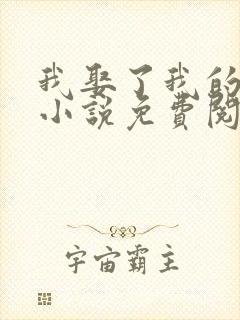 我娶了我的
小說免費閱
宇宙霸主